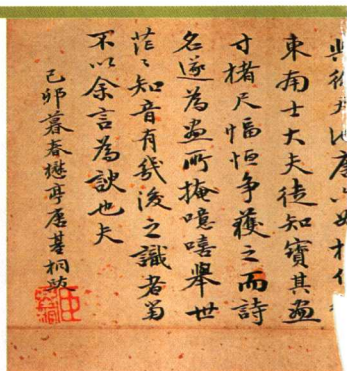 東南士大夫徒知寶其畫
寸楮尺幅恒爭獲之而詩
名遂為畫所掩噫嘻舉世
茫茫知音有幾後之識者當
不以余言為訣也夫
己卯暮春懋亭唐基桐跋